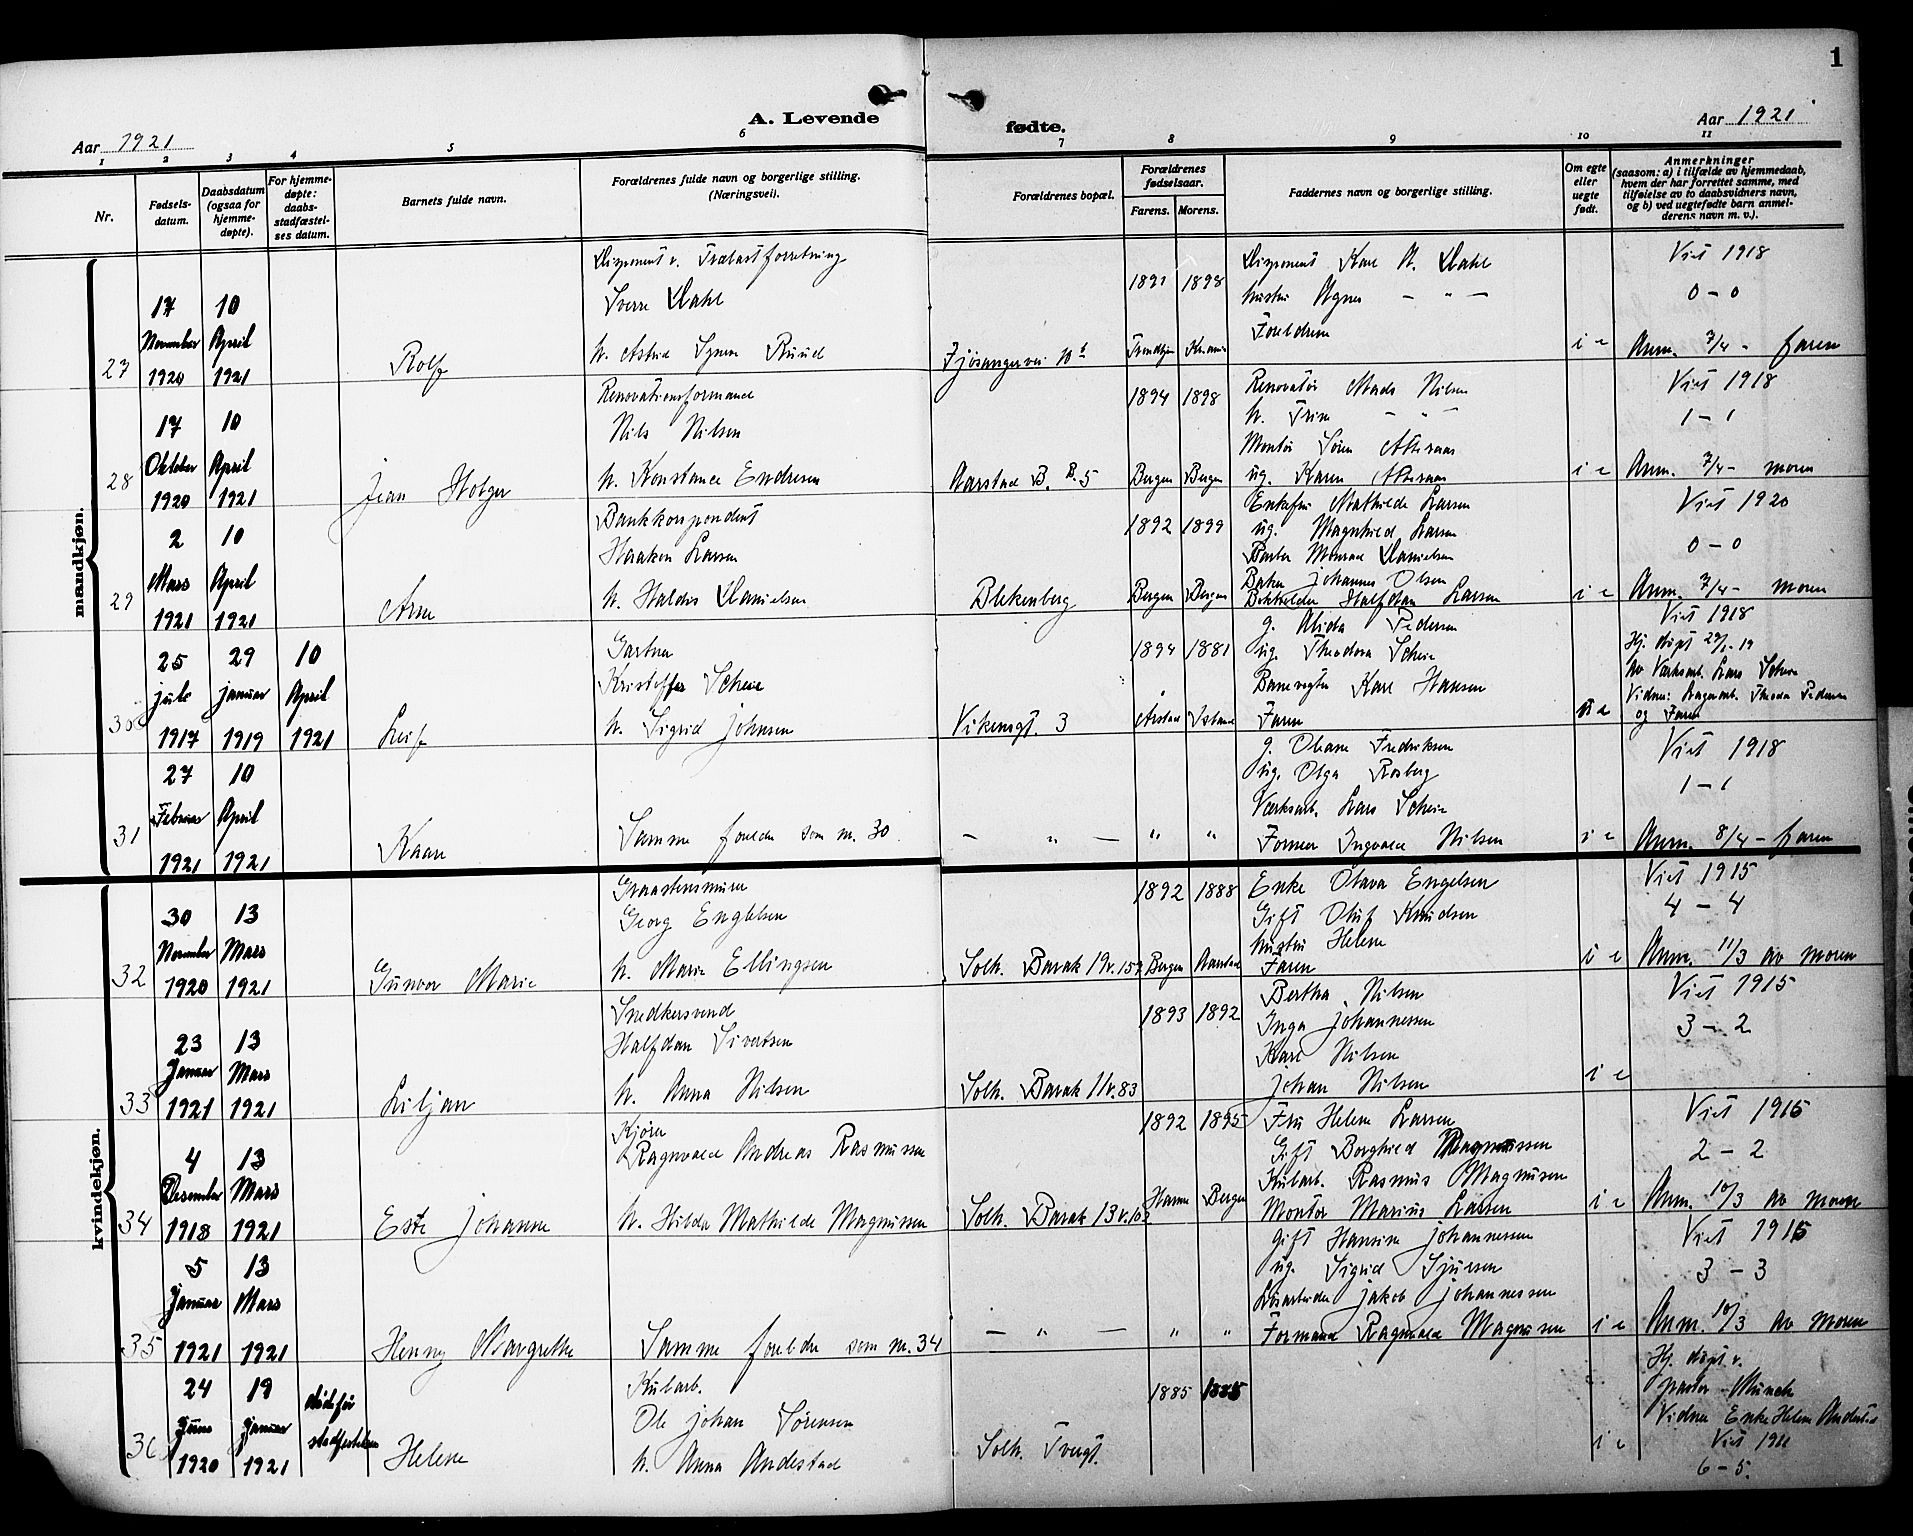 1
A. Levende fødte.
Aar 1921
Aar 1921
1 2 3 4 5 6 7 8 9 10 11
Nr.
Fødsels-
datum.
Daabsdatum
(ogsaa for
hjemme-
døpte).
For hjemme-
døpte:
daabs-
stadfæstel-
ses datum.
Barnets fulde navn.
Forældrenes fulde navn og borgerlige stilling.
(Næringsvei).
Forældrenes bopæl.
Forældrenes
fødselsaar.
Farens. Morens.
Faddernes navn og borgerlige stilling.
Om egte
eller
uegte
født.
Anmerkninger
(saasom: a) i tilfælde av hjemmedaab,
hvem der har forrettet samme, med
tilføielse av to daabsvidners navn,
og b) ved uegtefødte barn anmel-
derens navn m. v.).
mandkjøn.
23
17 November 1920
10 April 1921
Rolf
Disponent v. Trælastforretning
Sverre Dahl
h. Astrid Signe Ruud
Fjøsangervei
1891 1898
Disponent Karl A. Dahl
hustru Agnes — " —
Foreldrene
i e
Viet 1918
0 – 0
Anm. 7/4 – faren
28
17 Oktober 1920
10 April 1921
Jean Holger
Renovationsformand
Nils Nilsen
h. Konstance Endresen
Aarstad B. B. 5
1894 1898
Bergen Bergen
Renovatør Mads Nilsen
h. Trine — " —
Montør Søren
ug. Karen
i e
Viet 1918
1 – 1
Anm. 7/4 – moren
29
2 Mars 1921
10 April 1921
Arne
Bankkorspondent
Haakon Larsen
h. Haldis Danielsen
Blekenberg
1892 1899
Bergen Bergen
Enkefru Mathilde Larsen
ug. Magnhild Larsen
Monrad Danielsen
Baker Johannes Olsen
Bokholder Halfdan Larsen
i e
Viet 1920
0 – 0
Anm. 7/4 – moren
30
25 Juli 1917
29 Januar 1919
10 April 1921
Leif
Gartner
Kristoffer Scheie
h. Sigrid Johnsen
Vikensgt. 3
1894 1881
g. Alida Pedersen
ug. Theodora Scheie
Banevogter Karl Hansen
Faren
Viet 1918
Hj. døpt 29/1 – 19
av Værksarb. Lars Scheie
Vidner: Lagerarb. Pedersen
og Faren
31
27 Februar 1921
10 April 1921
Kaare
Samme foreldre som nr. 30.
— " — " "
g. Oliane Fredriksen
ug. Olga Rosberg
Værksarb. Lars Scheie
Former Ingvald Nilsen
i e
Viet 1918
1 – 1
Anm. 8/4 – faren
kvindekjøn.
32
30 November 1920
13 Mars 1921
Gunvor Marie
Graastensmurer
Georg Engelsen
h. Marie Ellingsen
Solh. Barak 19 v. 157
1892 1888
Bergen Aarstad
Enke Olava Engelsen
Gift Oluf Knudsen
hustru Helene
Faren
i e
Viet 1915
4 – 4
Anm. 11/3 av moren
33
23 Januar 1921
13 Mars 1921
Liljan
Snedkersvend
Halfdan Sivertsen
h. Anna Nilsen
Solh. Barak 11 v. 83
1893 1892
Bertha Nilsen
Inga Johannessen
Karl Nilsen
Johan Nilsen
i e
Viet 1915
3 – 2
34
4 Desember 1918
13 Mars 1921
Este Johanne
Kjører
Ragnvald Andreas Rasmussen
h. Hilda Mathilde Magnussen
Solh. Barak 13 v. 102
1892 1895
Bergen
Fru Helene Larsen
Gift Borghild Magnussen
Kularb. Rasmus Magnusen
Montør Marius Larsen
i e
Viet 1916
2 – 2
Anm. 10/3 av moren
35
5 Januar 1921
13 Mars 1921
Henny Margrethe
Samme foreldre som nr. 34
— " — " "
Gift Hansine Johannessen
ug. Sigrid Sjursen
Løsarbeider Jakob Johannessen
Formand Ragnvald Magnusen
i e
Viet 1916
3 – 3
Anm. 10/3 av moren
36
24 Juni 1920
19 Januar 1921
død før
stadfestelsen
Helene
Kularb.
Ole Johan Sørensen
h. Anna Andestad
Solh. Tvergt.
1885 1885
i e
Hj. døpt v.
pastor Munch
Vidner Enke Helene
Viet 1911
6 – 5.